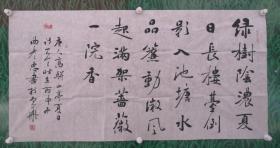 綠樹陰濃夏
日長樓臺倒
影入池塘水
晶簾動微風
起滿架薔薇
一院香
唐人高駢山亭夏日